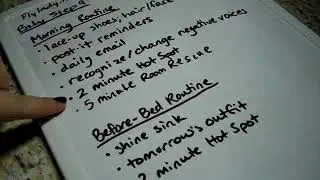 Fly Lady
Baby Step 9
Morning Routine
• lace-up shoes; hair/face
• post it reminders
• daily email
• recognize/change negative voices
• 2 minute Hot Spot
• 5 minute Room Rescue
Before-Bed Routine
• shine sink
• tomorrow's outfit
2 minute Hot Spot